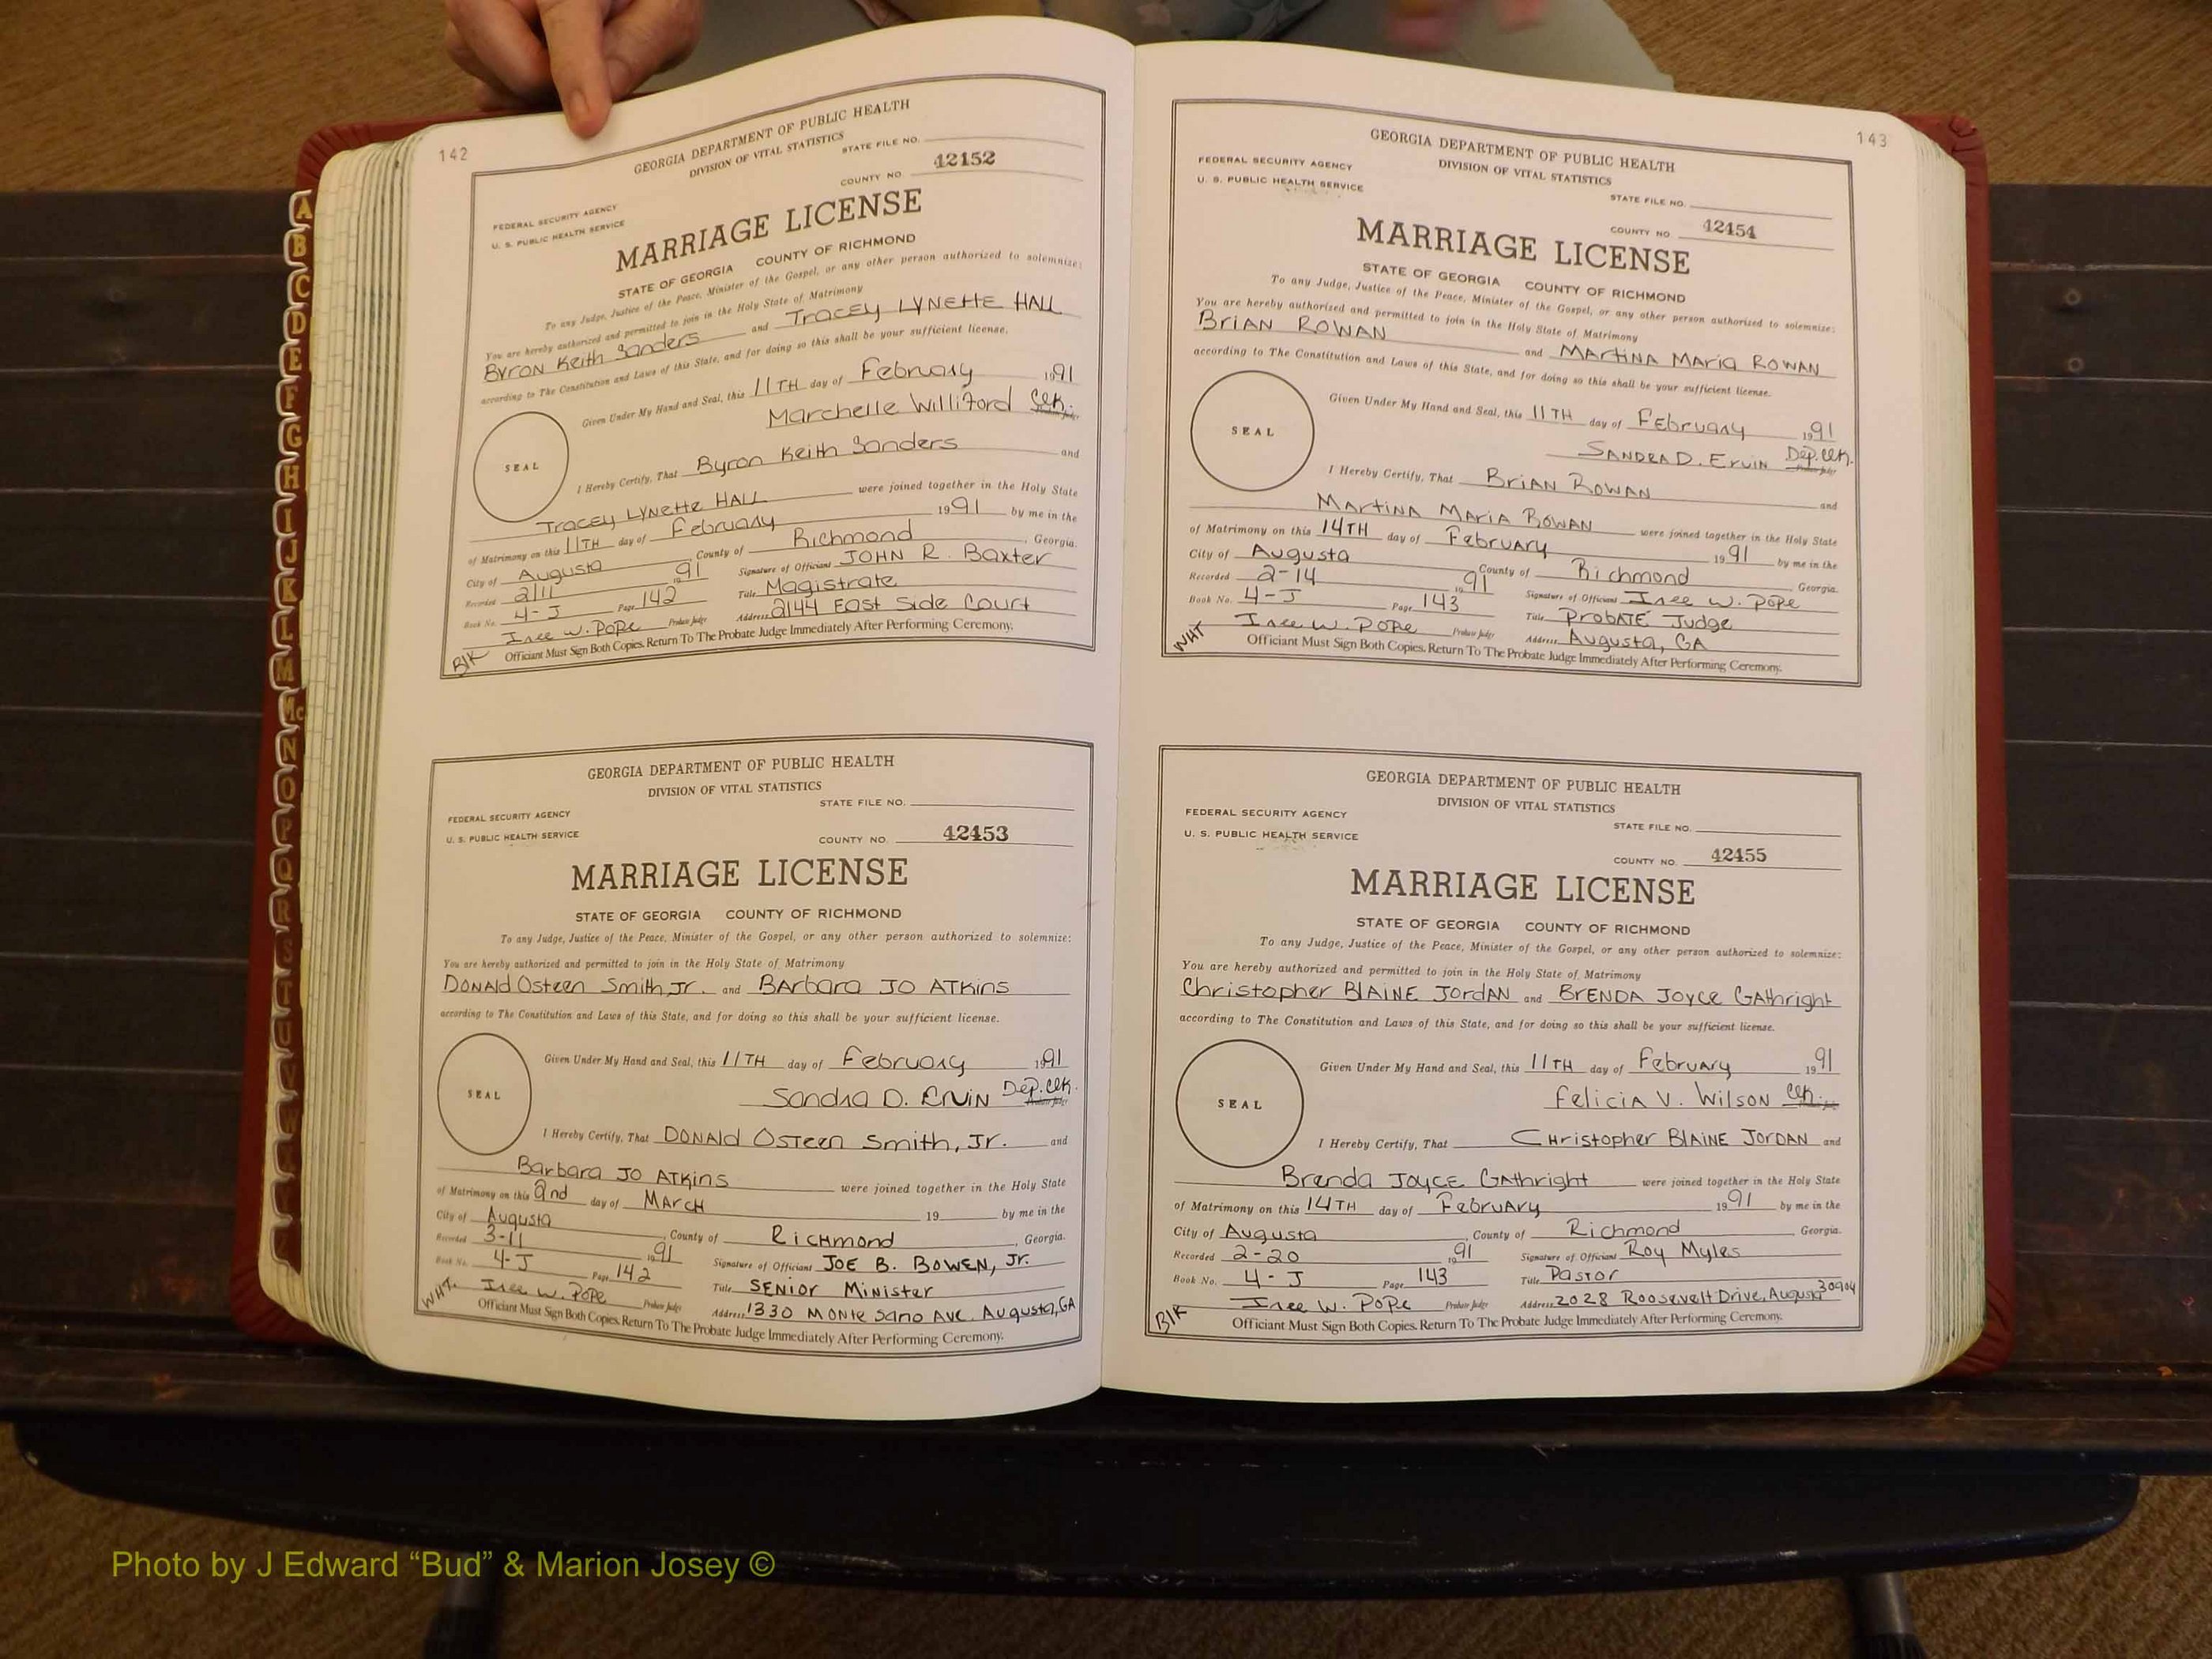 142
GEORGIA DEPARTMENT OF PUBLIC HEALTH
DIVISION OF VITAL STATISTICS
STATE FILE NO.
FEDERAL SECURITY AGENCY
U. S. PUBLIC HEALTH SERVICE
COUNTY NO. 42152
MARRIAGE LICENSE
STATE OF GEORGIA COUNTY OF RICHMOND
To any Judge, Justice of the Peace, Minister of the Gospel, or any other person authorized to solemnize:
You are hereby authorized and permitted to join in the Holy State of Matrimony
Byron Keith Sanders and Tracey Lynette Hall
according to The Constitution and Laws of this State, and for doing so this shall be your sufficient license.
Given Under My Hand and Seal, this 11TH day of February 1991
Marchelle Williford Clk. Probate Judge
SEAL
I Hereby Certify, That Byron Keith Sanders and
Tracey Lynette Hall were joined together in the Holy State
of Matrimony on this 11TH day of February 1991 by me in the
City of Augusta County of Richmond, Georgia.
Recorded 2/11 1991 Signature of Officiant John R. Baxter
Book No. 4-J Page 142 Title Magistrate
Inee W. Pope Probate Judge Address 2144 East Side Court
Blk Officiant Must Sign Both Copies. Return To The Probate Judge Immediately After Performing Ceremony.
GEORGIA DEPARTMENT OF PUBLIC HEALTH
DIVISION OF VITAL STATISTICS
STATE FILE NO.
FEDERAL SECURITY AGENCY
U. S. PUBLIC HEALTH SERVICE
COUNTY NO. 42453
MARRIAGE LICENSE
STATE OF GEORGIA COUNTY OF RICHMOND
To any Judge, Justice of the Peace, Minister of the Gospel, or any other person authorized to solemnize:
You are hereby authorized and permitted to join in the Holy State of Matrimony
Donald Osteen Smith Jr. and Barbara Jo Atkins
according to The Constitution and Laws of this State, and for doing so this shall be your sufficient license.
Given Under My Hand and Seal, this 11TH day of February 1991
Sandra D. Ervin Dep. Clk. Probate Judge
SEAL
I Hereby Certify, That Donald Osteen Smith, Jr. and
Barbara Jo Atkins were joined together in the Holy State
of Matrimony on this 2nd day of March 19 by me in the
City of Augusta County of Richmond, Georgia.
Recorded 3-11 1991 Signature of Officiant Joe B. Bowen, Jr.
Book No. 4-J Page 142 Title Senior Minister
Inee W. Pope Probate Judge Address 1330 Monte Sano Ave. Augusta, GA
WHT. Officiant Must Sign Both Copies. Return To The Probate Judge Immediately After Performing Ceremony.
143
GEORGIA DEPARTMENT OF PUBLIC HEALTH
DIVISION OF VITAL STATISTICS
FEDERAL SECURITY AGENCY
U. S. PUBLIC HEALTH SERVICE
STATE FILE NO.
COUNTY NO. 42454
MARRIAGE LICENSE
STATE OF GEORGIA COUNTY OF RICHMOND
To any Judge, Justice of the Peace, Minister of the Gospel, or any other person authorized to solemnize:
You are hereby authorized and permitted to join in the Holy State of Matrimony
Brian Rowan and Martina Maria Rowan
according to The Constitution and Laws of this State, and for doing so this shall be your sufficient license.
Given Under My Hand and Seal, this 11TH day of February 1991
Sandra D. Ervin Dep. Clk. Probate Judge
SEAL
I Hereby Certify, That Brian Rowan and
Martina Maria Rowan were joined together in the Holy State
of Matrimony on this 14TH day of February 1991 by me in the
City of Augusta County of Richmond Georgia.
Recorded 2-14 1991 Signature of Officiant Inee W. Pope
Book No. 4-J Page 143 Title Probate Judge
Inee W. Pope Probate Judge Address Augusta, GA
WHT Officiant Must Sign Both Copies. Return To The Probate Judge Immediately After Performing Ceremony.
GEORGIA DEPARTMENT OF PUBLIC HEALTH
DIVISION OF VITAL STATISTICS
FEDERAL SECURITY AGENCY
U. S. PUBLIC HEALTH SERVICE
STATE FILE NO.
COUNTY NO. 42455
MARRIAGE LICENSE
STATE OF GEORGIA COUNTY OF RICHMOND
To any Judge, Justice of the Peace, Minister of the Gospel, or any other person authorized to solemnize:
You are hereby authorized and permitted to join in the Holy State of Matrimony
Christopher Blaine Jordan and Brenda Joyce Gathright
according to The Constitution and Laws of this State, and for doing so this shall be your sufficient license.
Given Under My Hand and Seal, this 11TH day of February 1991
Felicia V. Wilson Clk.
SEAL
I Hereby Certify, That Christopher Blaine Jordan and
Brenda Joyce Gathright were joined together in the Holy State
of Matrimony on this 14TH day of February 1991 by me in the
City of Augusta County of Richmond Georgia.
Recorded 2-20 1991 Signature of Officiant Roy Myles
Book No. 4-J Page 143 Title Pastor
Inee W. Pope Probate Judge Address 2028 Roosevelt Drive, Augusta 30904
Blk Officiant Must Sign Both Copies. Return To The Probate Judge Immediately After Performing Ceremony.
A
B
C
D
E
F
G
H
I
J
K
L
M
Mc
N
O
P
Q
R
S
T
U
Photo by J Edward “Bud” & Marion Josey ©